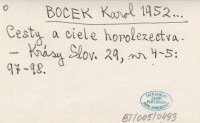 BOCEK Karol 1952...
Cesty a ciele horolezectva.
– Krásy Slov. 29, nr. 4-5:
97-98.
87/005/0495